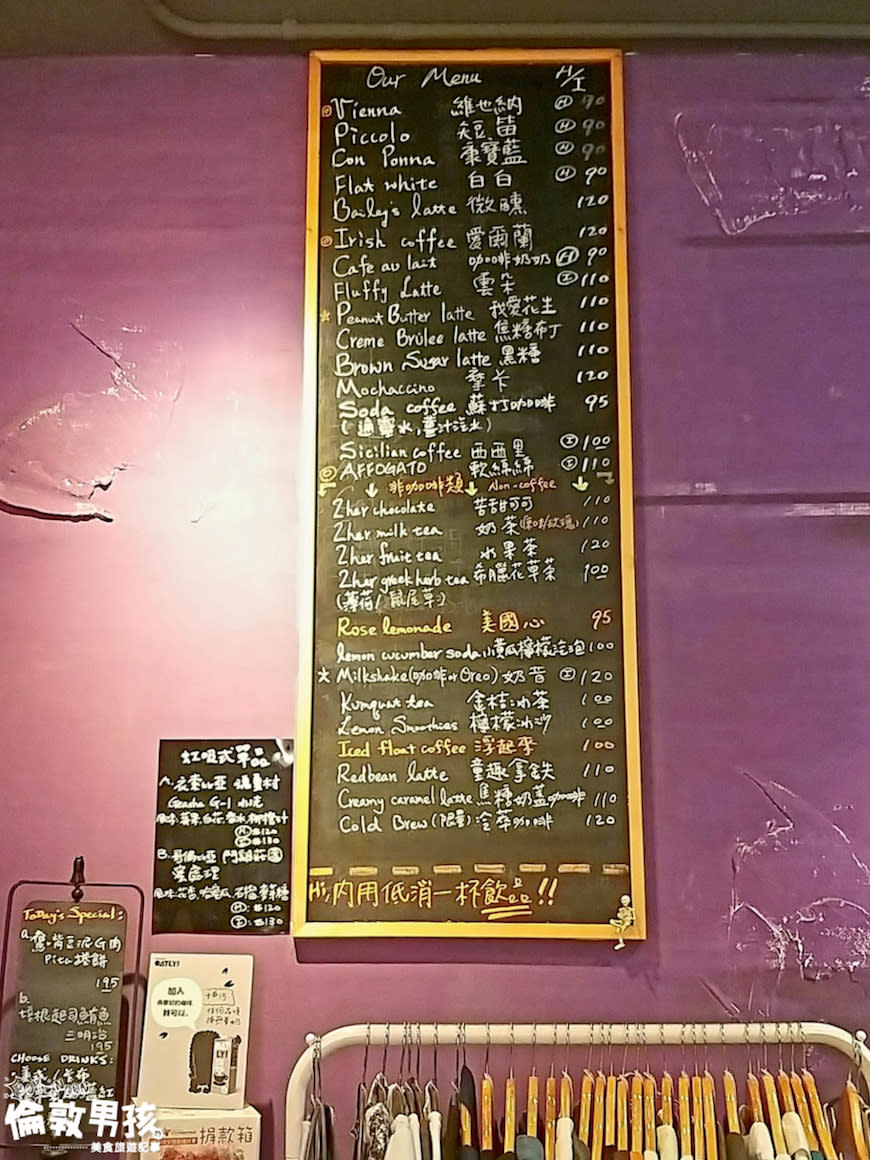 Our Menu H/I
Vienna 維也納 Ⓗ 90
Piccolo 短笛 Ⓗ 90
Con Ponna 康寶藍 Ⓗ 90
Flat white 白白 Ⓗ 90
Bailey's latte 微醺 120
Irish coffee 愛爾蘭 120
Cafe au lait 咖啡奶奶 Ⓗ 90
Fluffy Latte 雲朵 Ⓘ 110
☆ Peanut Butter latte 我愛花生 110
Creme Brûlee latte 焦糖布丁 110
Brown Sugar latte 黑糖 110
Mochaccino 摩卡 120
Soda coffee 蘇打咖啡 95
(通寧水,薑汁汽水)
Sicilian coffee 西西里 Ⓘ 100
AFFOGATO 軟綿綿 Ⓘ 110
↓ 非咖啡類 ↓ Non-coffee ↓
2her chocolate 苦甜可可 110
2her milk tea 奶茶(原味/玫瑰) 110
2her fruit tea 水果茶 120
2her greek herb tea 希臘花草茶 100
(薄荷/鼠尾草)
Rose lemonade 美國心 95
lemon cucumber soda 小黃瓜檸檬汽泡 100
☆ Milkshake(咖啡or Oreo) 奶昔 Ⓘ 120
Kumquat tea 金桔冰茶 100
Lemon Smoothies 檸檬冰沙 100
Iced float coffee 浮起來 100
Redbean latte 童趣拿鐵 110
Creamy caramel latte 焦糖奶蓋咖啡 110
Cold Brew (限量) 冷萃咖啡 120
Hi,內用低消一杯飲品!!
虹吸式單品
A. 衣索比亞
Geasha G-1 水洗
Ⓗ $120
Ⓘ $130
B. 哥倫比亞
蜜處理
Ⓗ: $120
Ⓘ: $130
ToDay's Special:
a.
Pita 捲餅
195
b.
培根起司鮪魚
三明治
195
CHOOSE DRINKS:
美式/
OATLY!
加入
就可以。
+$15
捐款箱
倫敦男孩
美食旅遊記事